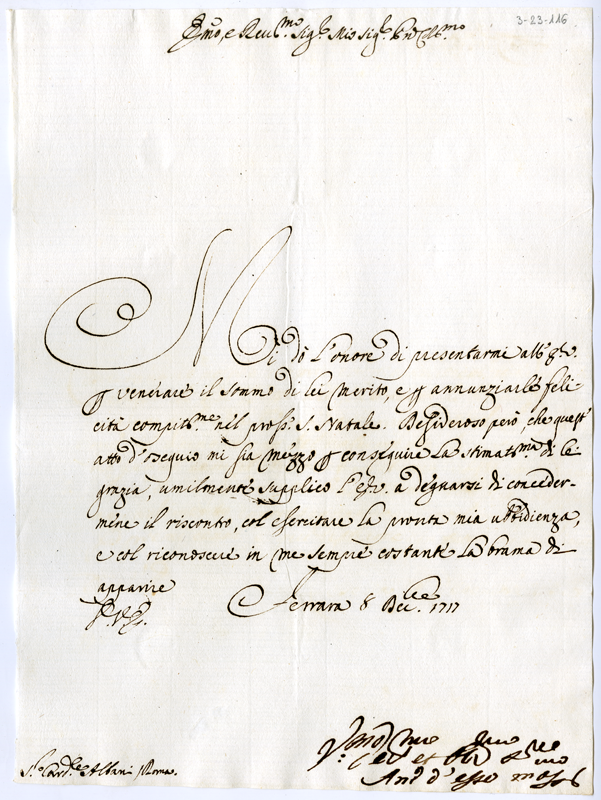 3-23-116
Emo, e Reu.mo Sig.r Mio Sig.r Pne Col.mo
Mi dò l'onore di presentarmi all'E.V.
p venerare il sommo di lei merito, e p annunziarle feli-
cità compitis.me nel pross.o S. Natale. Desideroso però, che quest'
atto d'ossequio mi sia mezzo p conseguire la stimatis.ma di lei
grazia, umilmente supplico l'E.V. a degnarsi di conceder-
mene il riscontro, col esercitare la pronta mia ubbidienza,
e col riconoscere in me sempre costante la brama di
apparire
Ferrara 8 Dec.bre 1717
S.r Card.le Albani Roma.